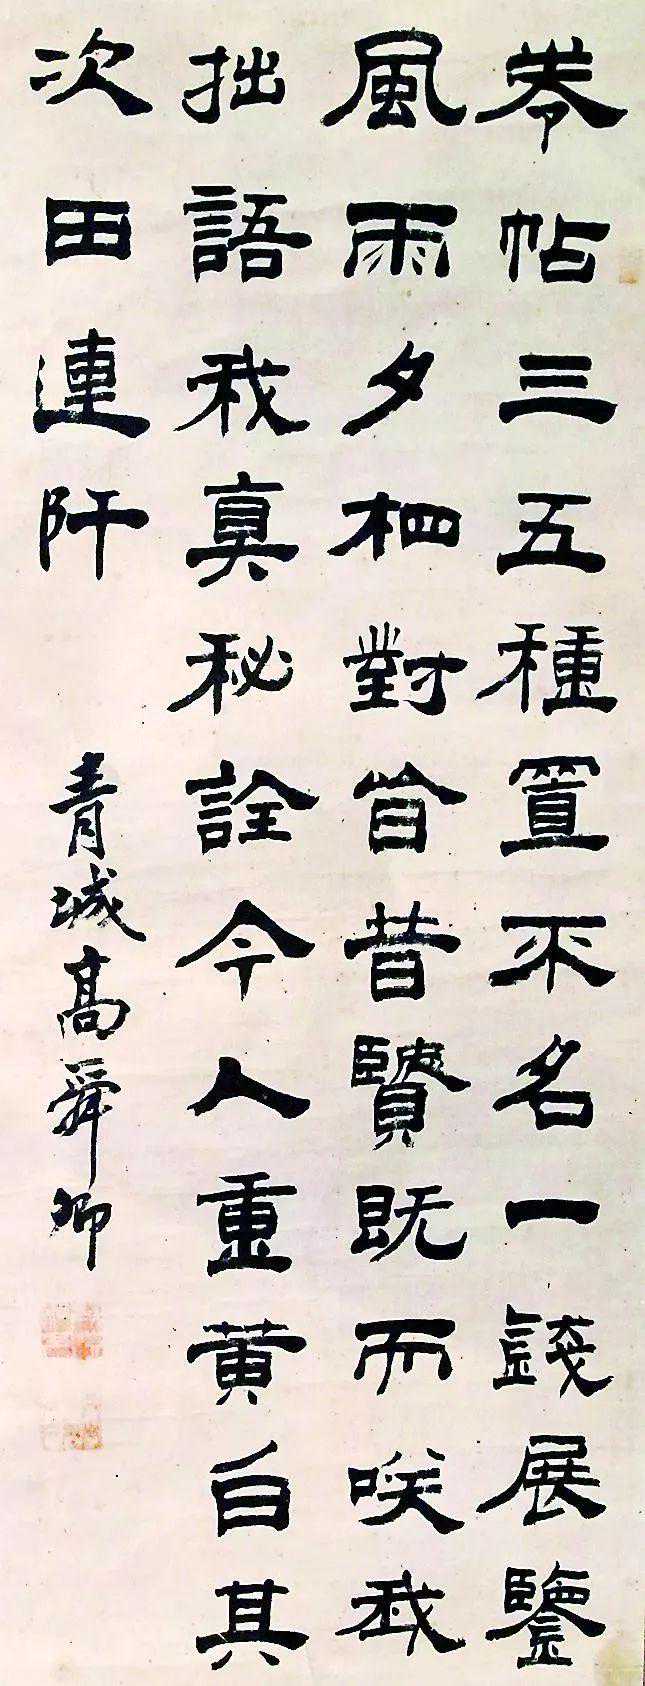 卷帖三五種置不名一錢展鑒
風雨夕相對皆昔賢既而咲我
拙語我真秘詮今人重黃白其
次田連阡
青城高舜卿